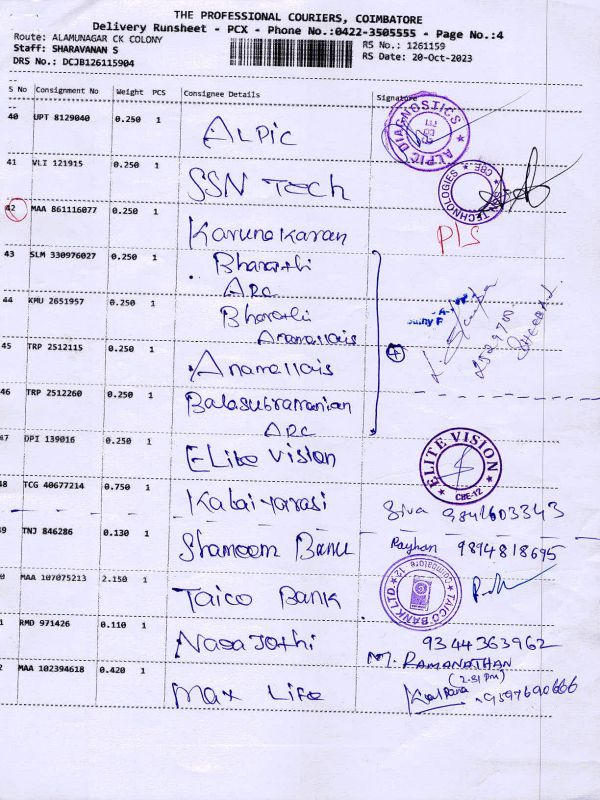 THE PROFESSIONAL COURIERS, COIMBATORE
Delivery Runsheet - PCX - Phone No.:0422-3505555 - Page No.:4
Route: ALAMUNAGAR CK COLONY
RS No.: 1261159
Staff: SHARAVANAN S
RS Date: 20-Oct-2023
DRS No.: DCJB126115904
S No Consignment No Weight PCS Consignee Details Signature
40 UPT 8129040 0.250 1 ALPIC
ALPIC DIAGNOSTICS
41 VLI 121915 0.250 1 SSN Tech
TECHNOLOGIES CBE
42 MAA 861116077 0.250 1 Karunakaran P/S
43 SLM 330976027 0.250 1 Bharathi
ARC
44 KMU 2651957 0.250 1 Bharathi
Anamallais
45 TRP 2512115 0.250 1 Anamallais
4
46 TRP 2512260 0.250 1 Balasubramanian
ARC
47 DPI 139016 0.250 1 Elite vision
ELITE VISION
CBE-12
48 TCG 40677214 0.750 1 Kalaiyarasi Siva 9842603343
49 TNJ 846286 0.130 1 Shameem Banu Rayhan 9894818695
0 MAA 107075213 2.150 1 Taico Bank
TAICO BANK LTD. Coimbatore 12
1 RMD 971426 0.110 1 Nagajothi 9344363962
M. RAMANATHAN
(2.51 pm)
2 MAA 102394618 0.420 1 Max Life Kalpana 9597690666